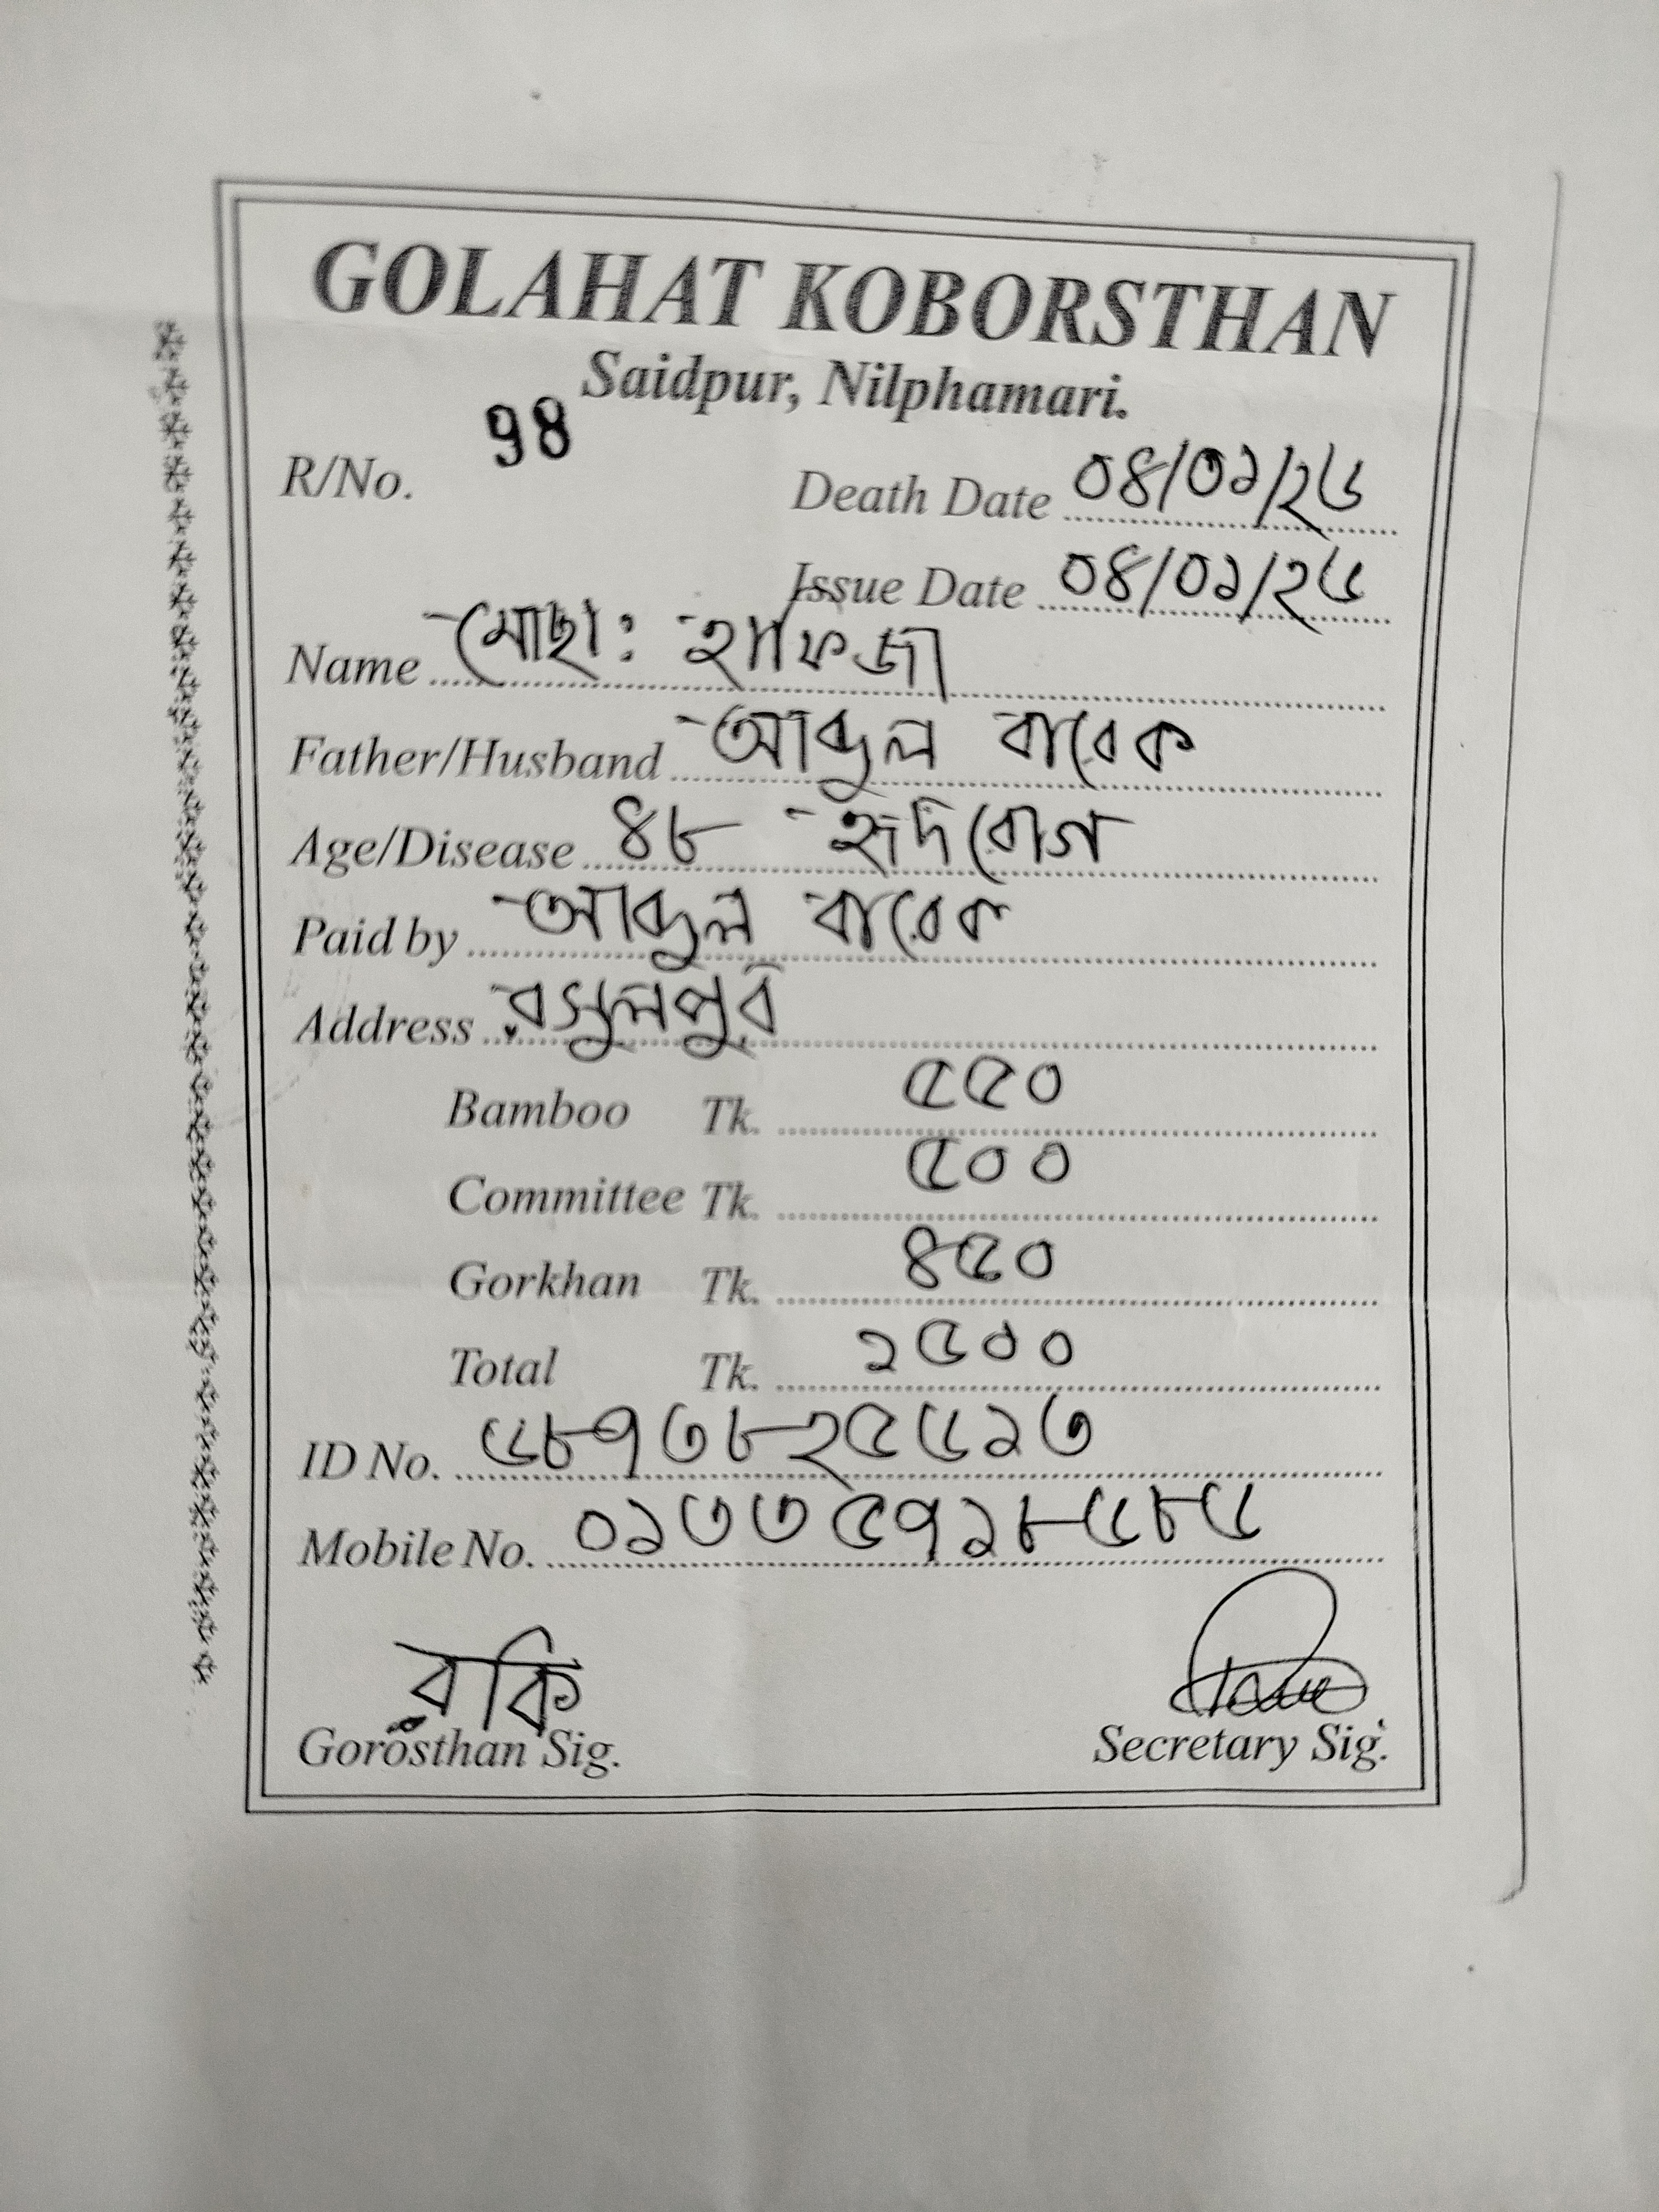 GOLAHAT KOBORSTHAN
Saidpur, Nilphamari.
R/No. 98
Death Date ০৪/০১/২৬
Issue Date ০৪/০১/২৬
Name মোছা: হাফেজা
Father/Husband আব্দুল বারেক
Age/Disease ৪৮ হৃদরোগ
Paid by আব্দুল বারেক
Address রসুলপুর
Bamboo Tk. ৫৫০
Committee Tk. ৫০০
Gorkhan Tk. ৪৫০
Total Tk. ১৫০০
ID No. ৬৮৭৩৮২৫৬১৩
Mobile No. ০১৩৩৫৭১৮৬৮৬
রকি
Gorosthan Sig.
Secretary Sig.